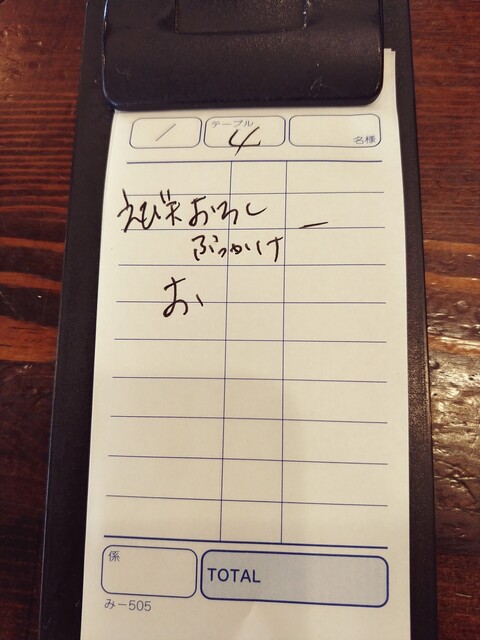 /
テーブル
4
名様
えび天おろし
ぶっかけ ー
お
係
TOTAL
み-505